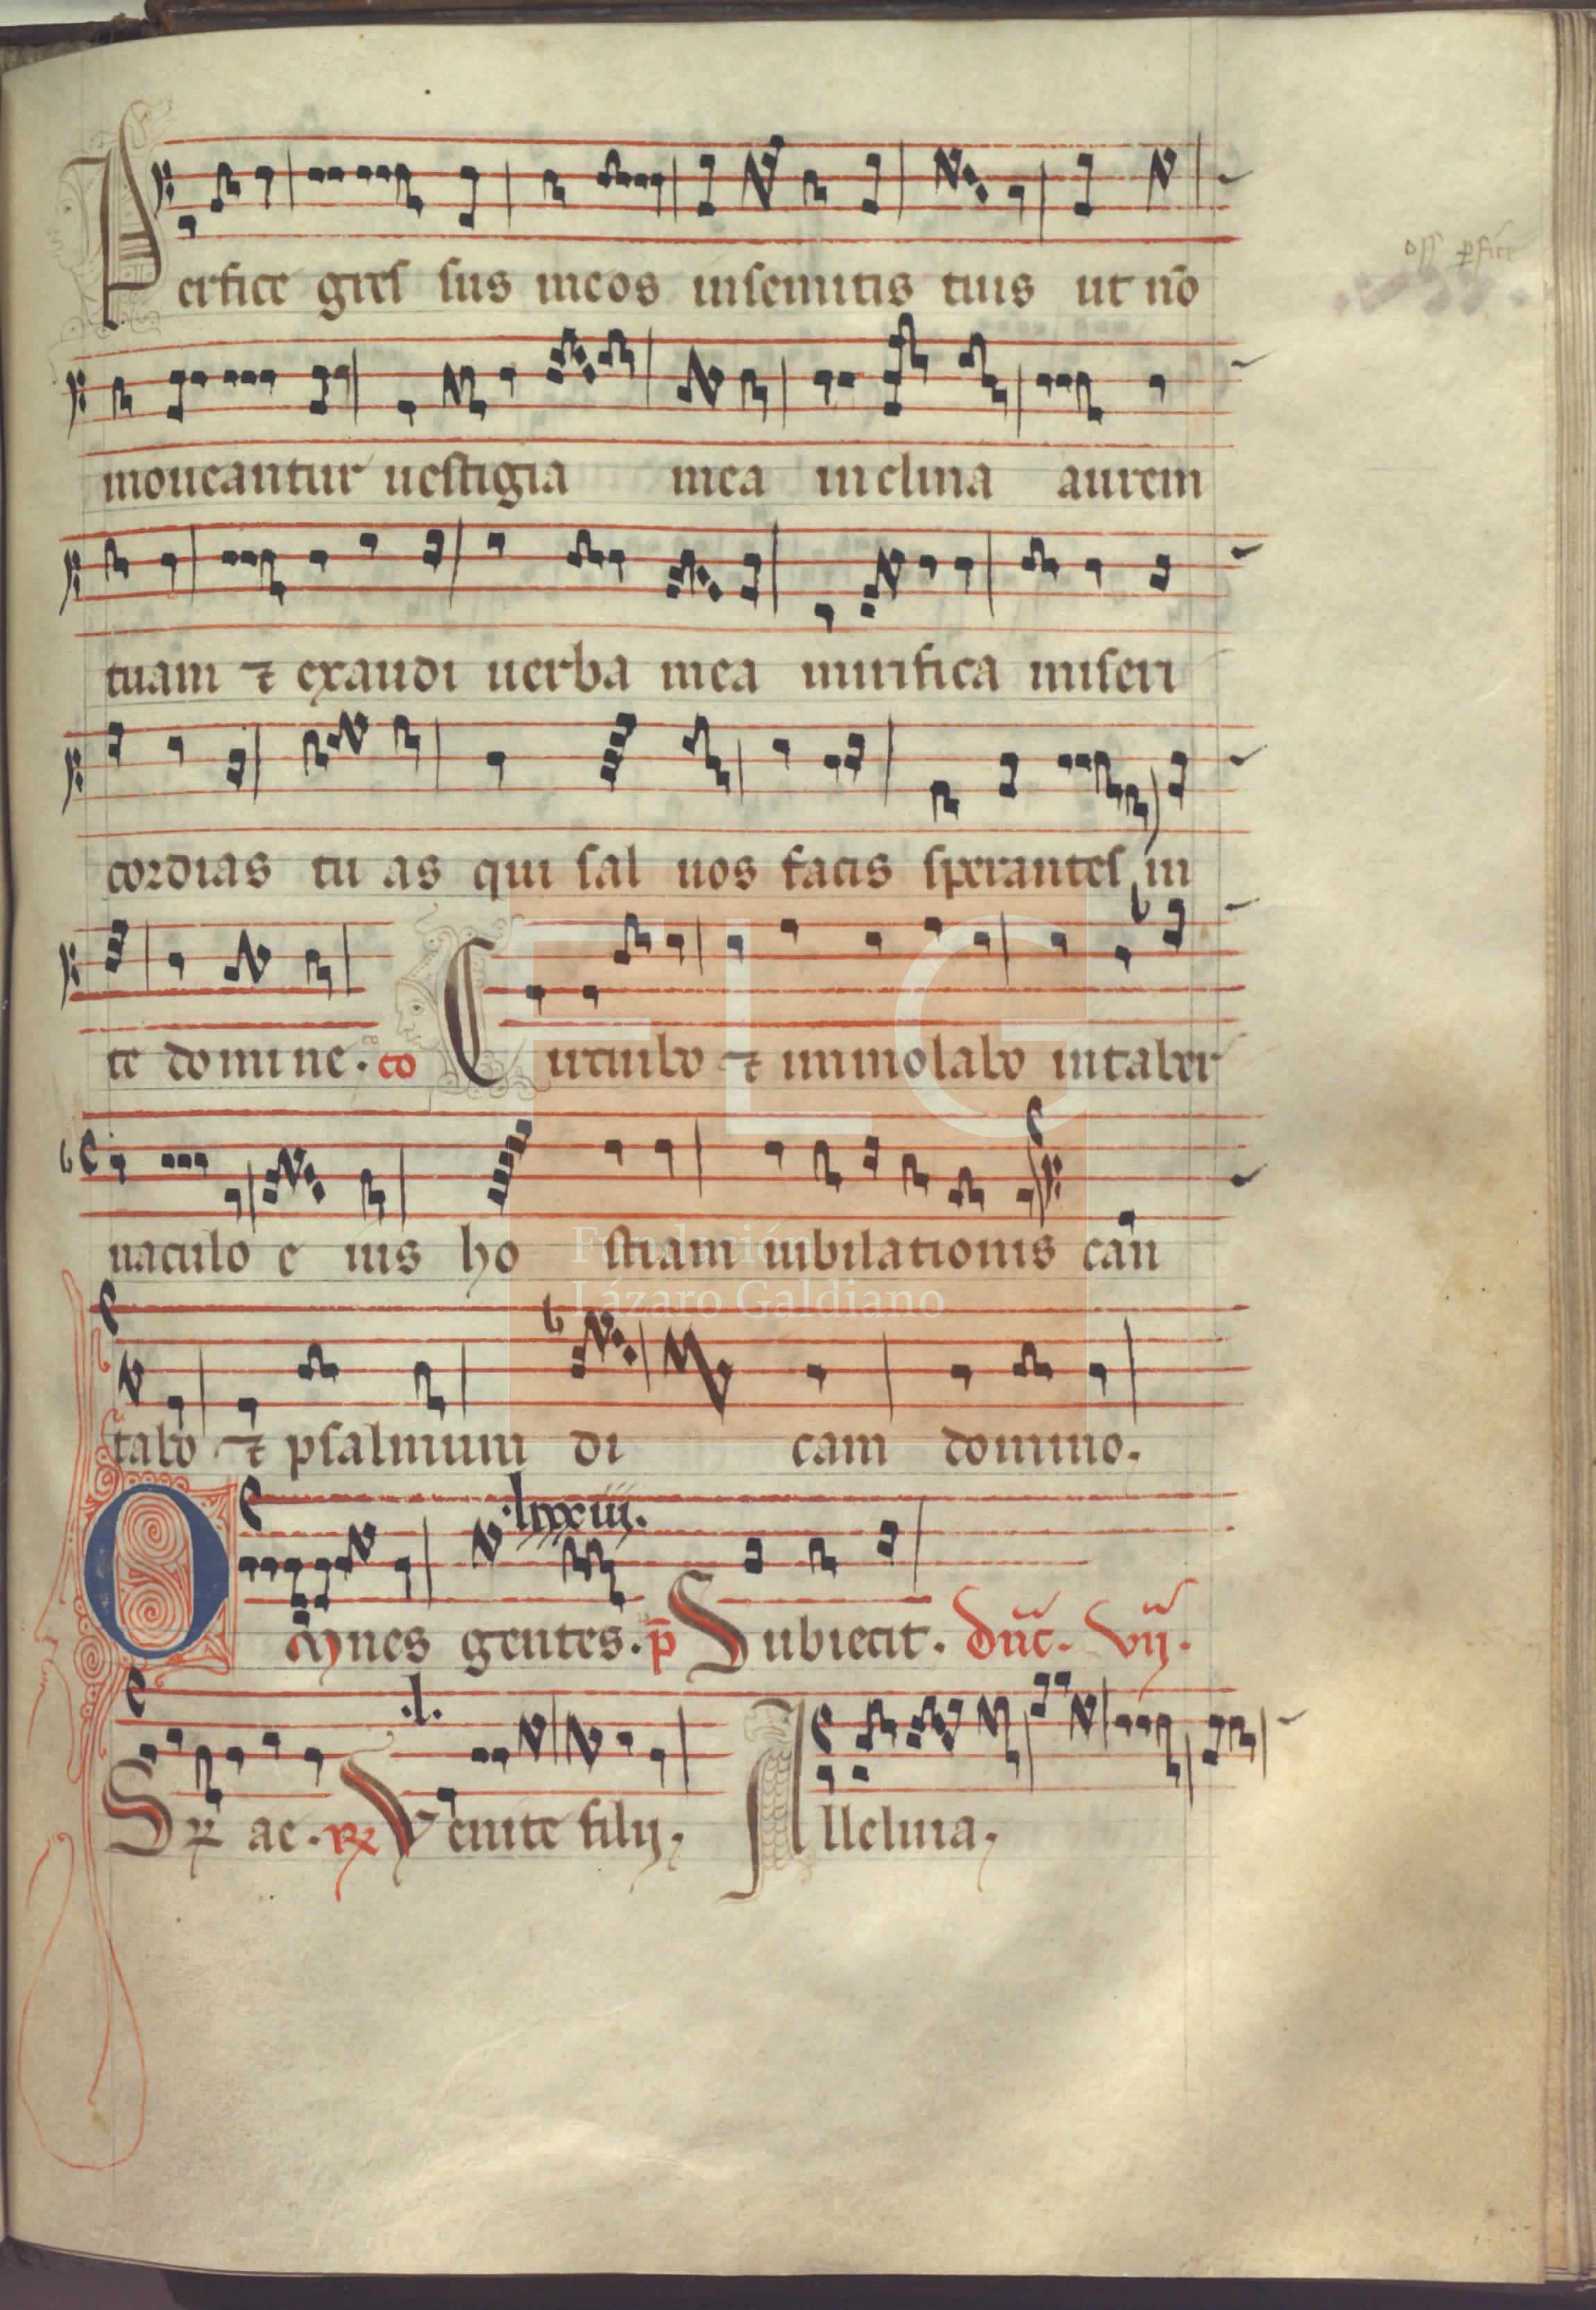 Perfice gres sus meos insemitis tuis ut nō
off ꝑfice
moueantur uestigia mea inclina aurem
tuam ⁊ exaudi uerba mea mirifica miseri
cordias tu as qui sal uos facis sperantes in
te domine. co Circuibo ⁊ immolabo intaber
naculo e ius ho stiam iubilationis can
Fundación
Lázaro Galdiano
tabo ⁊ psalmum di cam domino.
.lxxiii.
Omnes gentes. p̄ Subiecit. dn̄c. vij.
.l.
Sꝑ ac. ℞ Venite filij. Alleluia.
FLG